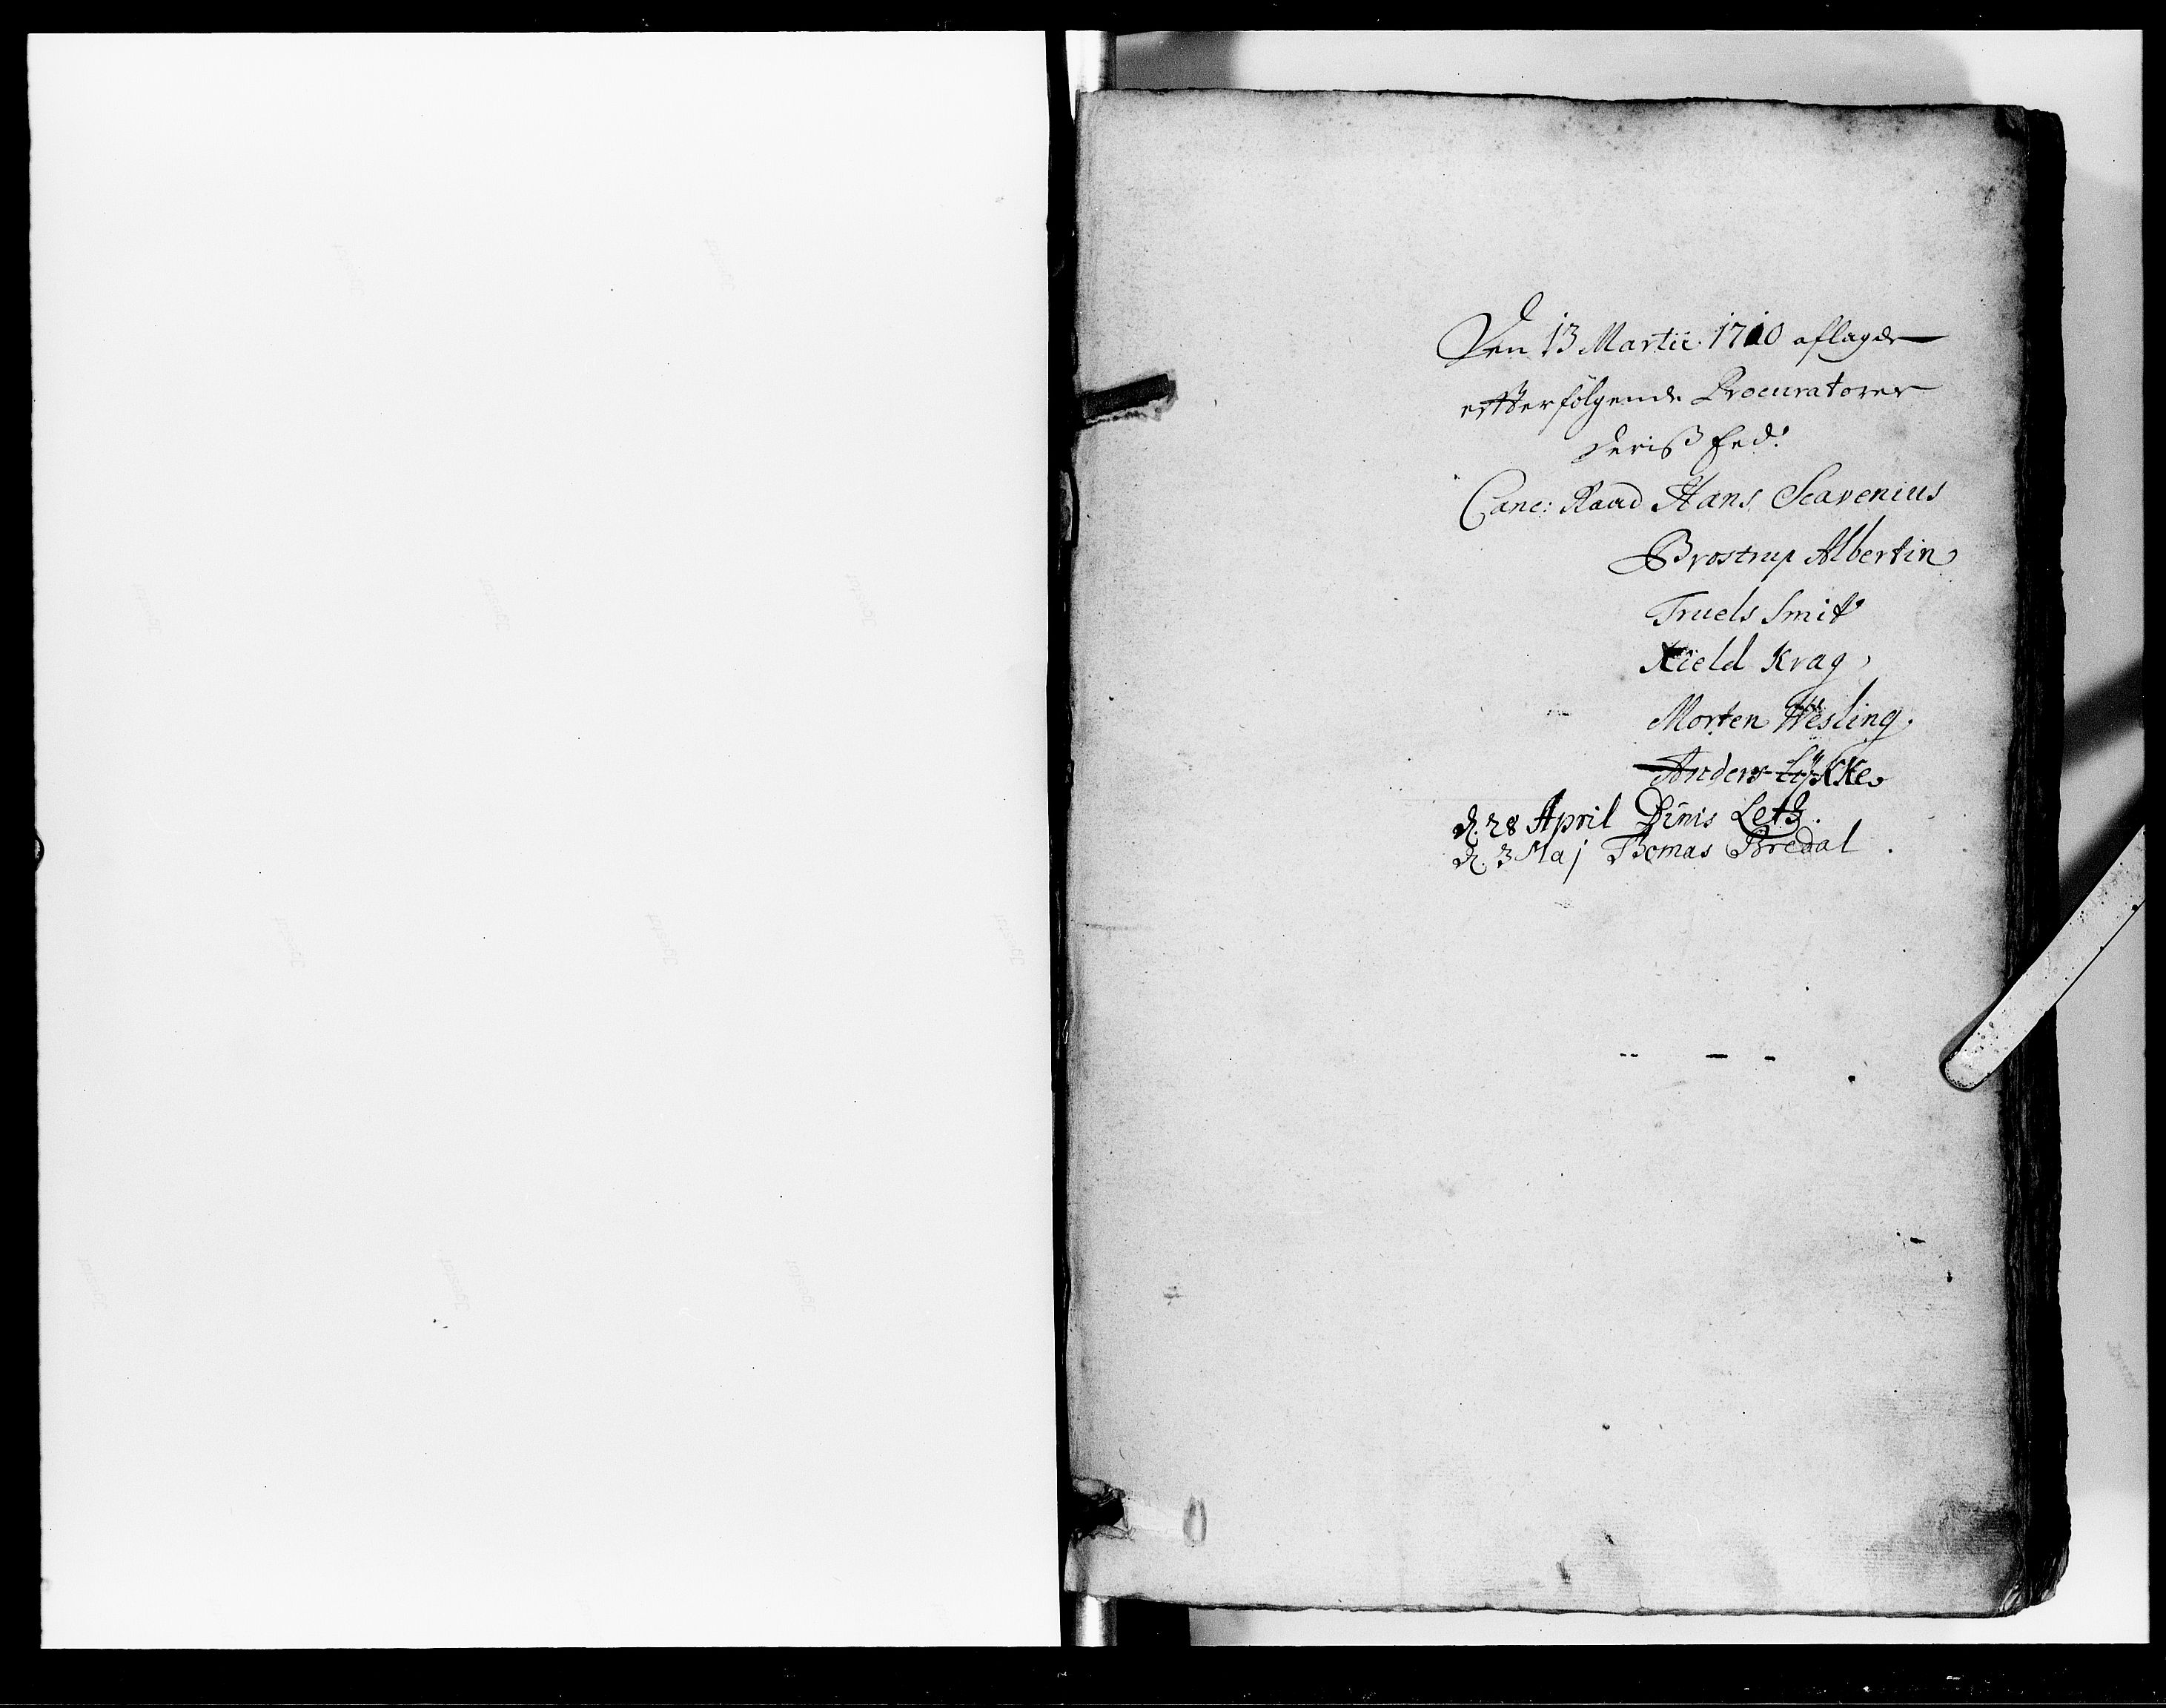 Den 13 Martii 1710 aflagde
effterfølgende Procuratorer
deriß Eed:
Canc: Raad Hans Scavenius
Brostrup Albertin
Truels Smit
Kield Krag
Morten Wesling.
Anders Lÿkke
d. 28 April Dinis Leth.
d. 3 Maj Thomas Bredal.